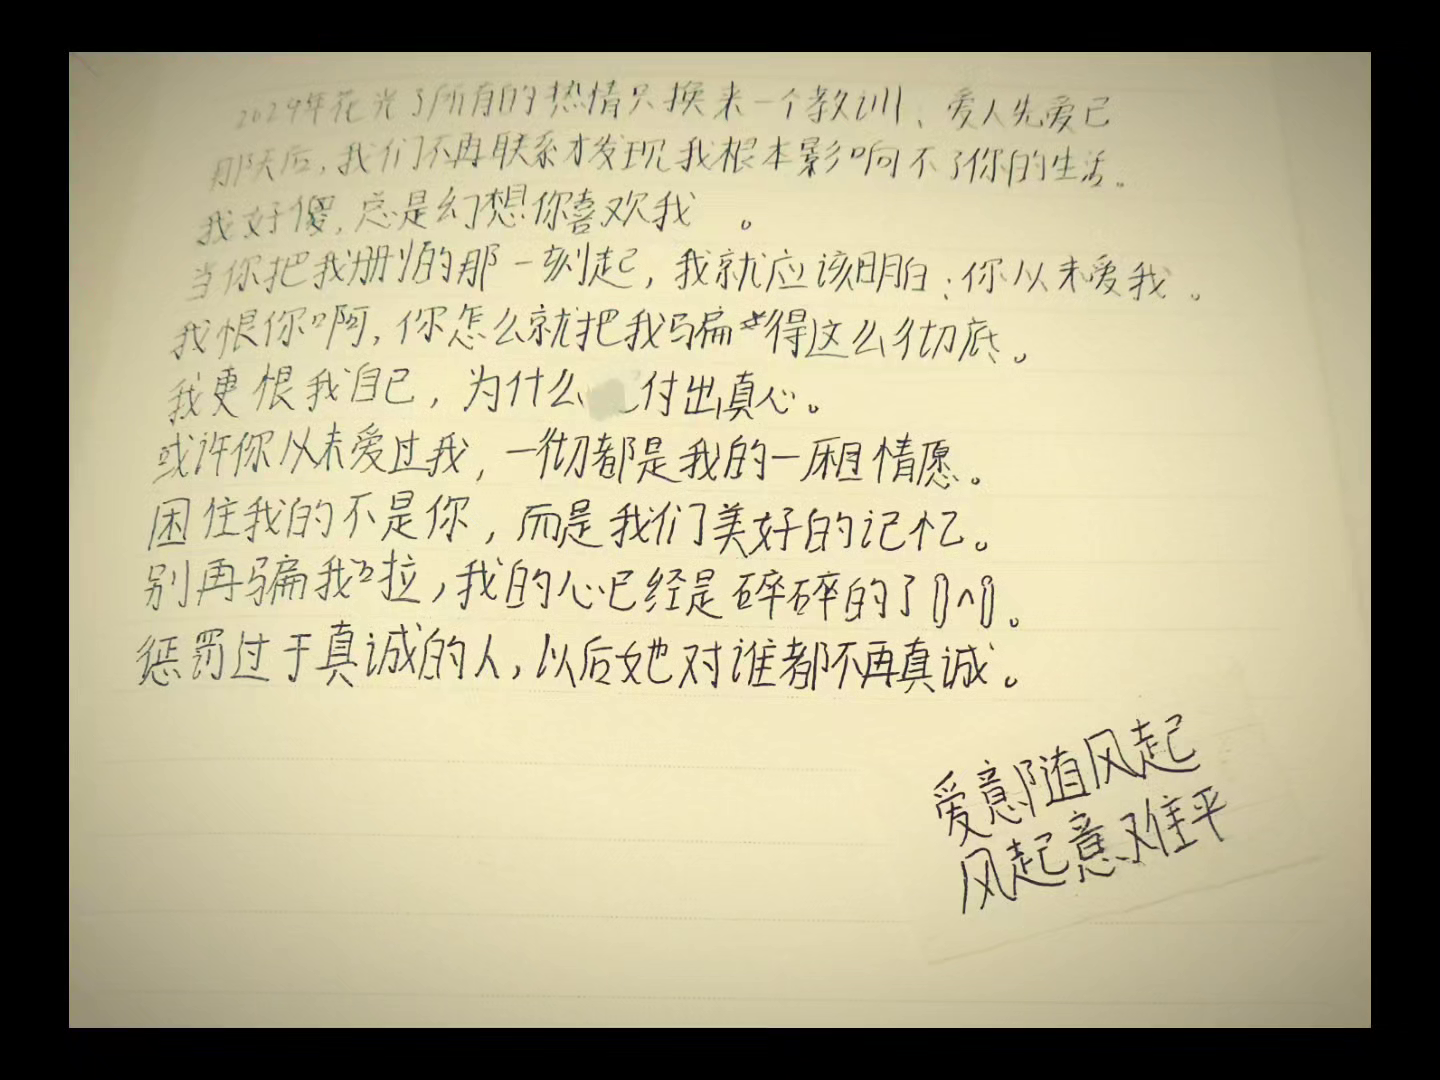 2029年花光了所有的热情只换来一个教训、爱人先爱己
那天后,我们不再联系才发现我根本影响不了你的生活。
我好傻,总是幻想你喜欢我 。
当你把我删的那一刻起,我就应该明白:你从未爱我。
我恨你啊,你怎么就把我骗得这么彻底。
我更恨我自己,为什么付出真心。
或许你从未爱过我,一彻都是我的一厢情愿。
困住我的不是你,而是我们美好的记忆。
别再骗我拉,我的心已经是碎碎的了。
惩罚过于真诚的人,以后她对谁都不再真诚。
爱意随风起
风起意难平